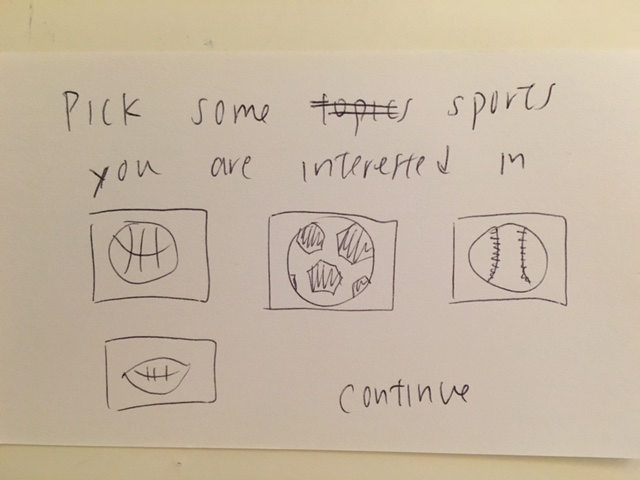 Pick some topics sports
you are interested in
continue